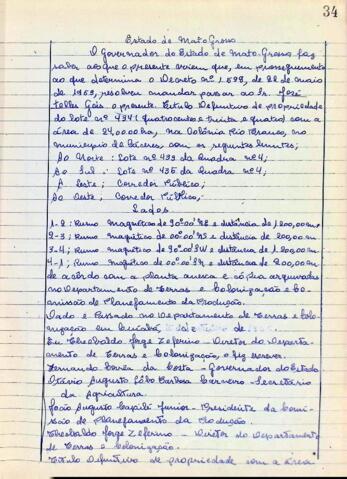 34
Estado de Mato Grosso
O Governador do Estado de Mato-Grosso faz
saber aos que o presente virem que, em prosseguimento
ao que determina o Decreto nº 1.598, de 22 de maio
de 1953, resolveu mandar passar ao Sr. José
Telles Gois o presente Título Definitivo de propriedade
do lote nº 434 (quatrocentos e trinta e quatro) com a
área de 24,0000ha, na Colônia Rio Branco, no
município de Cáceres, com os seguintes limites;
Ao Norte: Lote nº 433 da Quadra nº 4;
Ao Sul: Lote nº 435 da Quadra nº 4;
A Leste; Corredor Público;
Ao Oeste; Corredor Público,
Lados
1-2; Rumo magnético de 90º00'NE e distância de 1.200,00m
2-3; Rumo magnético de 00º00' e distância de 200,00m
3-4; Rumo magnético de 90º00'SW e distância de 1.200,00m
4-1; Rumo magnético de 00º00' e distância de 200,00m
de acordo com a planta anexa e cópia arquivadas
no Departamento de Terras e Colonização e Co-
missão de Planejamento da Produção.
Dado e Passado no Departamento de Terras e Colo-
nização em Cuiabá, de de
Eu Thebaldo Jorge Zeferino - Diretor do Departa-
mento de Terras e Colonização, o fiz escrever.
Fernando Corrêa da Costa - Governador do Estado
Otávio Augusto Lôbo Barbosa Carneiro - Secretário
da Agricultura.
João Augusto Capilé Junior - Presidente da Comis-
são de Planejamento da Produção.
Thebaldo Jorge Zeferino - Diretor do Departamento
de Terras e Colonização.
Título Definitivo de propriedade com a área